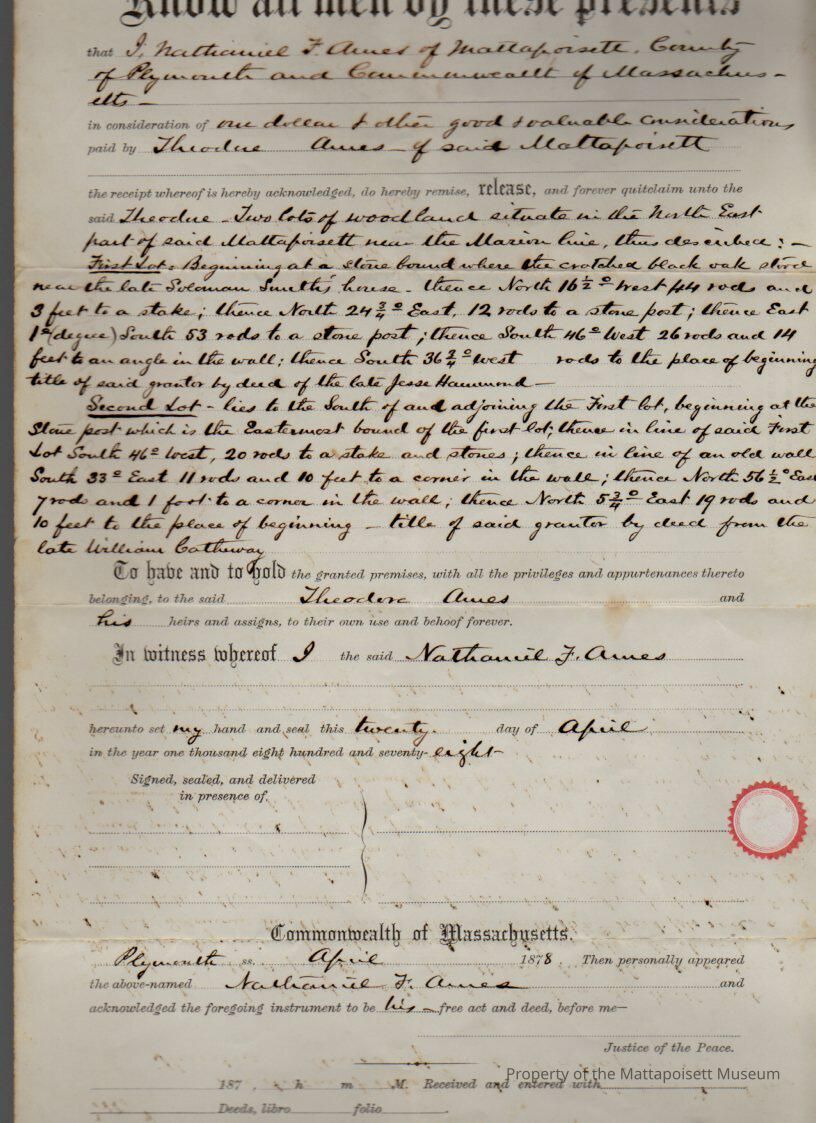 Know all men by these presents
that I, Nathaniel F. Ames of Mattapoisett, County
of Plymouth and Commonwealth of Massachus-
etts -
in consideration of one dollar & other good & valuable considerations
paid by Theodore Ames of said Mattapoisett
the receipt whereof is hereby acknowledged, do hereby remise, release, and forever quitclaim unto the
said Theodore - Two lots of woodland situate in the North East
part of said Mattapoisett near the Marion line, thus described: -
First Lot. Beginning at a stone bound where the crotched black oak stood
near the late Soloman Smith's house - thence North 16 1/2° West 44 rods and
3 feet to a stake; thence North 24 3/4° East, 12 rods to a stone post; thence East
1° (degree) South 53 rods to a stone post; thence South 46° West 26 rods and 14
feet to an angle in the wall; thence South 36 3/4° West rods to the place of beginning
title of said grantor by deed of the late Jesse Hammond -
Second Lot - lies to the South of and adjoining the First lot, beginning at the
Stone post which is the Easternmost bound of the first lot; thence in line of said First
Lot South 46° West, 20 rods to a stake and stones; thence in line of an old wall
South 33° East 11 rods and 10 feet to a corner in the wall; thence North 56 1/2° East
7 rods and 1 foot to a corner in the wall; thence North 5 3/4° East 19 rods and
10 feet to the place of beginning - title of said grantor by deed from the
late William Catheway
To have and to hold the granted premises, with all the privileges and appurtenances thereto
belonging, to the said Theodore Ames and
his heirs and assigns, to their own use and behoof forever.
In witness whereof I the said Nathaniel F. Ames
hereunto set my hand and seal this twenty- day of April
in the year one thousand eight hundred and seventy-eight
Signed, sealed, and delivered
in presence of
Commonwealth of Massachusetts.
Plymouth ss. April 1878. Then personally appeared
the above-named Nathaniel F. Ames and
acknowledged the foregoing instrument to be his free act and deed, before me—
Justice of the Peace.
Property of the Mattapoisett Museum
187 , h m M. Received and entered with
Deeds, libro folio